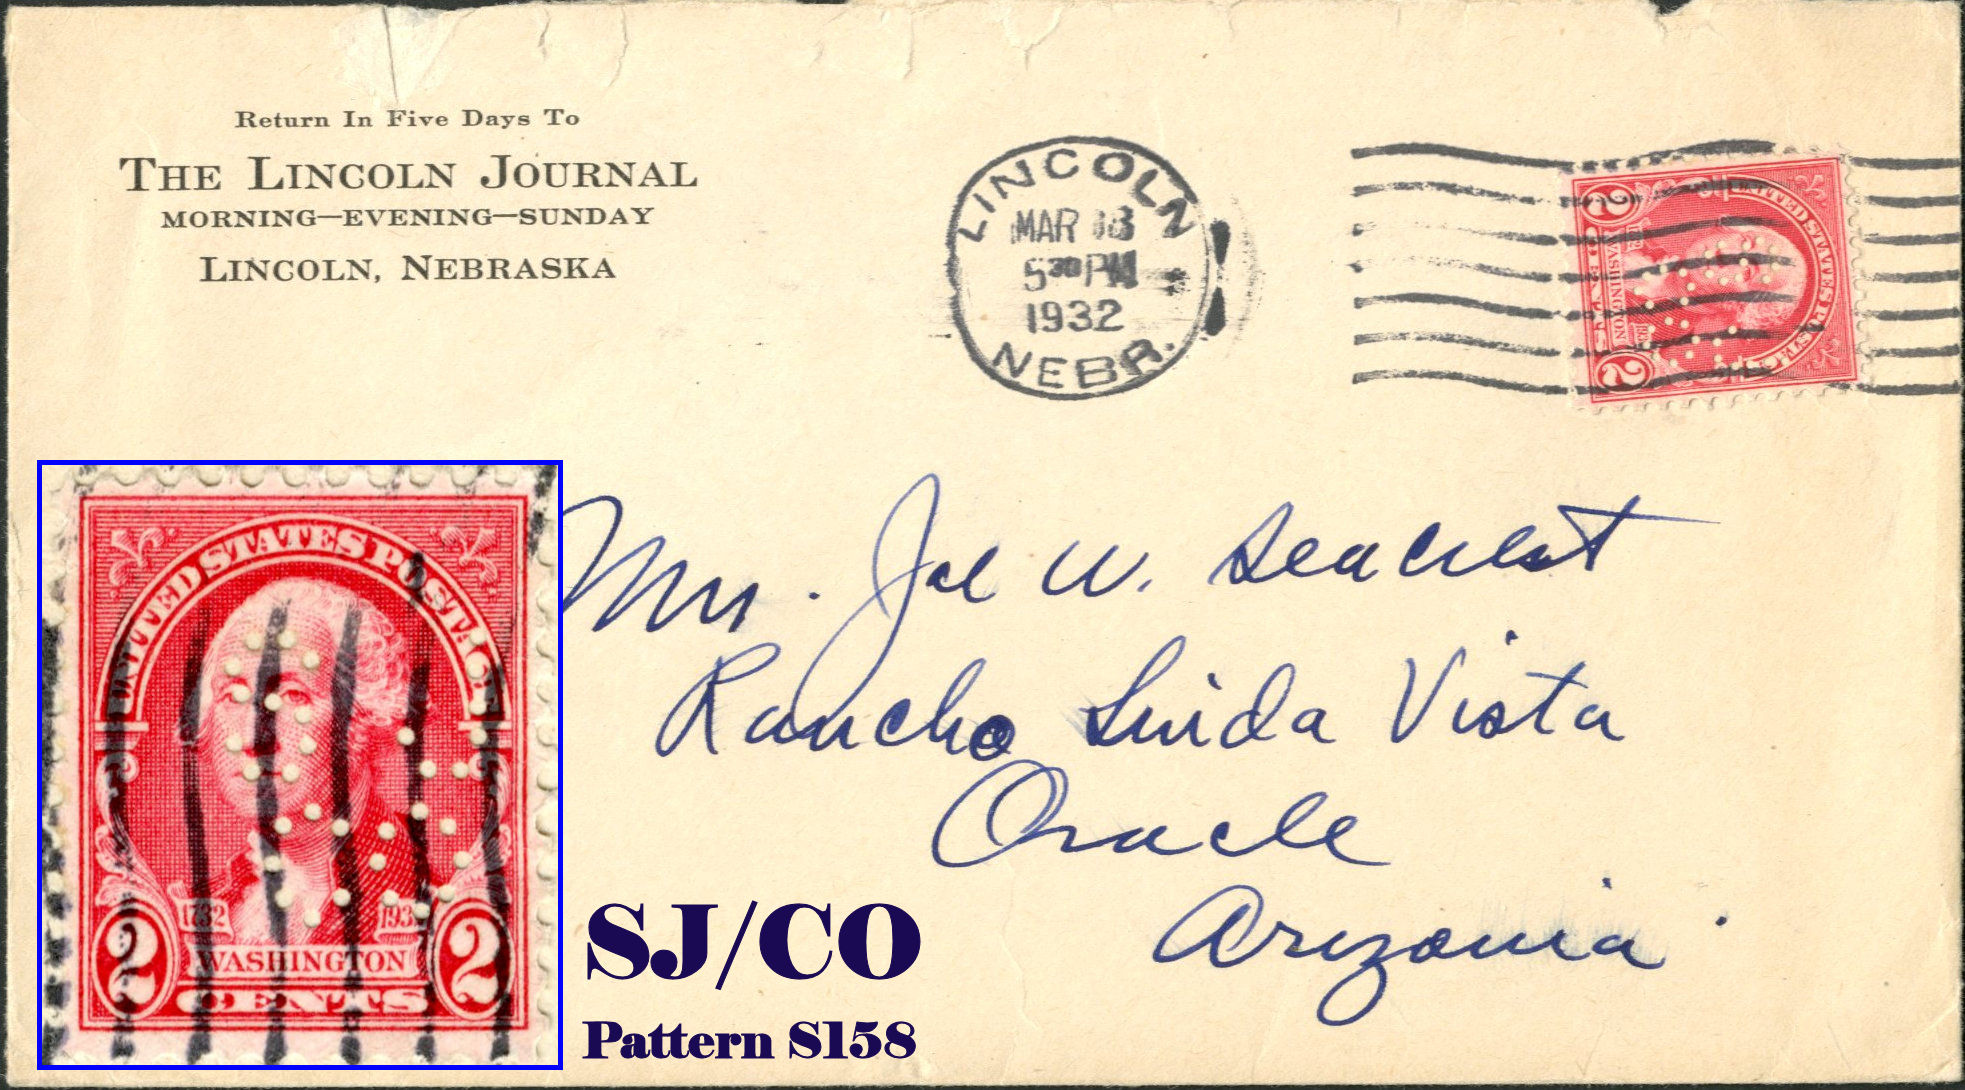 Return In Five Days To
THE LINCOLN JOURNAL
MORNING—EVENING—SUNDAY
LINCOLN, NEBRASKA
LINCOLN
MAR 18
5 30 PM
1932
NEBR.
UNITED STATES POSTAGE
1732 1932
WASHINGTON
2 CENTS 2
Mr. Joe W. Seacrest
Rancho Linda Vista
Oracle
Arizonia
UNITED STATES POSTAGE
1732 193
2 WASHINGTON 2
CENTS
SJ/CO
Pattern S158